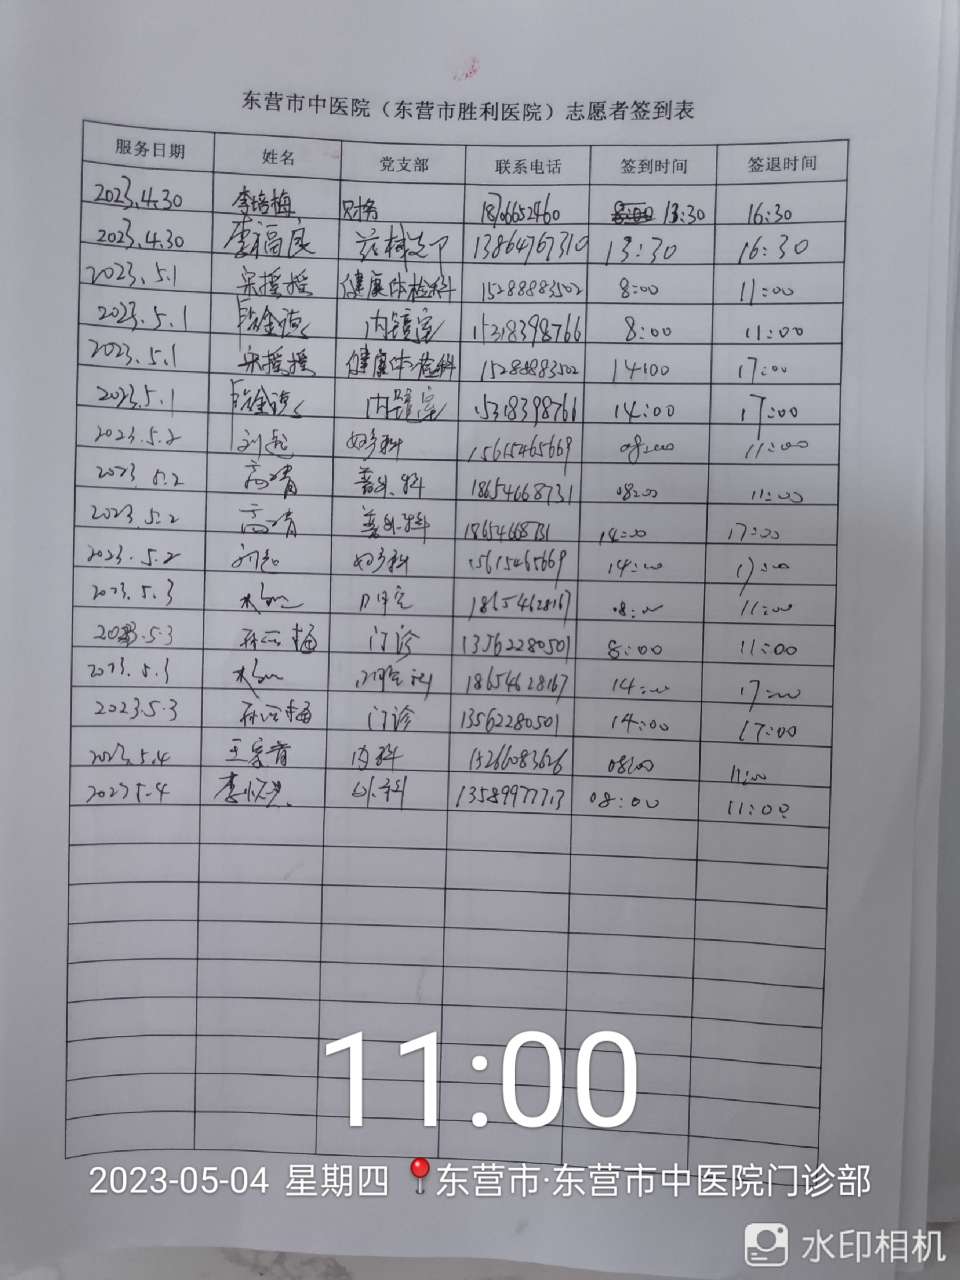 东营市中医院（东营市胜利医院）志愿者签到表
服务日期 姓名 党支部 联系电话 签到时间 签退时间
2023.4.30 李培梅 财务 18706652460 13:30 16:30
2023.4.30 李福民 药械支部 13864767310 13:30 16:30
2023.5.1 宋摇摇 健康体检科 15288883502 8:00 11:00
2023.5.1 内镜室 15318398766 8:00 11:00
2023.5.1 宋摇摇 健康体检科 15288883502 14:00 17:00
2023.5.1 内镜室 15318398766 14:00 17:00
2023.5.2 妇产科 15615465669 08:00 11:00
2023.5.2 高晴 普外科 18654668731 08:00 11:00
2023.5.2 高晴 普外科 18654668731 14:00 17:00
2023.5.2 妇产科 15615465669 14:00 17:00
2023.5.3 18654628167 08:00 11:00
2023.5.3 门诊 13562280501 8:00 11:00
2023.5.3 18654628167 14:00 17:00
2023.5.3 门诊 13562280501 14:00 17:00
2023.5.4 内科 15266083626 08:00 11:00
2023.5.4 外科 13589977713 08:00 11:00
11:00
2023-05-04 星期四 东营市·东营市中医院门诊部
水印相机